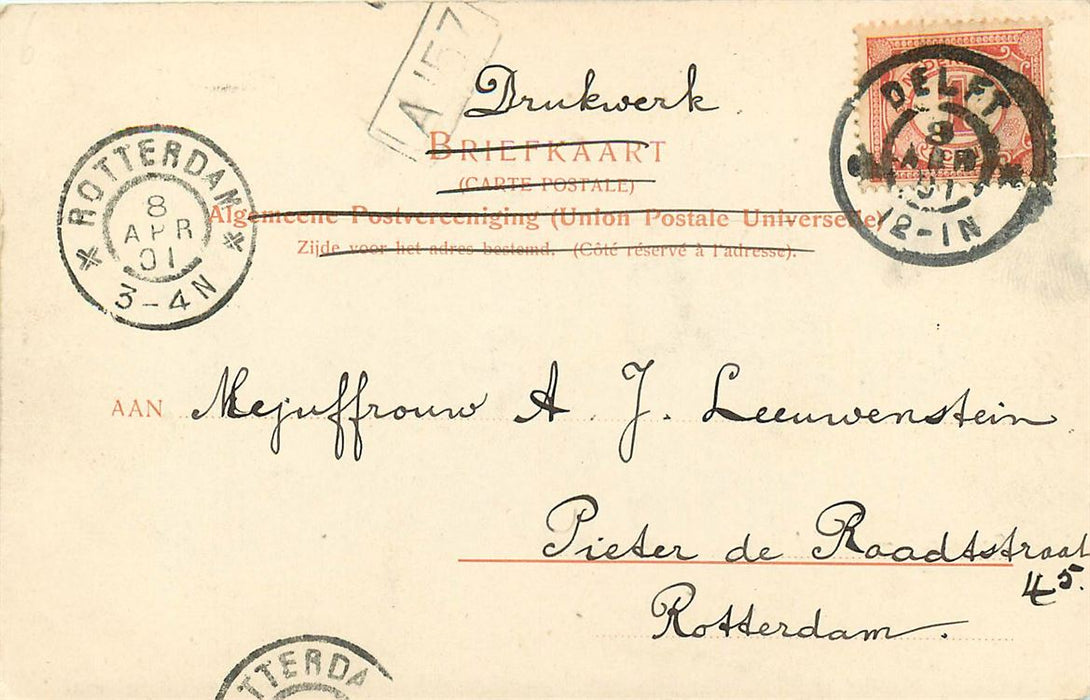 A 157
Drukwerk
BRIEFKAART
(CARTE POSTALE)
Algemeene Postvereeniging (Union Postale Universelle)
Zijde voor het adres bestemd. (Côté réservé à l'adresse).
ROTTERDAM
8
APR
01
3-4N
DELFT
8
APR
01
12-1N
NEDER
1
AAN Mejuffrouw A J. Leeuwenstein
Pieter de Raadtstraat
45.
Rotterdam.
TTERDA